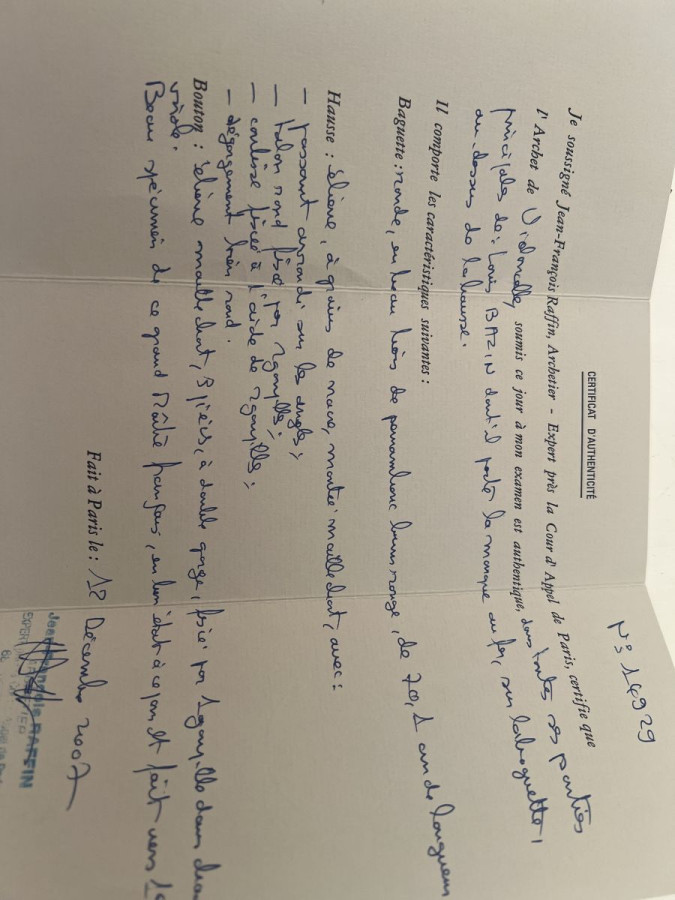 N° 14929
CERTIFICAT D'AUTHENTICITÉ
Je soussigné Jean-François Raffin, Archetier - Expert près la Cour d'Appel de Paris, certifie que
l'Archet de Violoncelle, soumis ce jour à mon examen est authentique, dans toutes ses parties
principales de: Louis BAZIN dont il porte la marque au fer, sur la baguette,
au-dessus de la hausse.
Il comporte les caractéristiques suivantes :
Baguette : ronde, en beau bois de pernambouc brun rouge, de 70,1 cm de longueur
Hausse : ébène, à grains de nacre, montée maillechort, avec :
- passant arrondi sur les angles ;
- talon rond fixé par 2 goupilles ;
- coulisse fixée à l'aide de 2 goupilles ;
- dégorgement bien rond.
Bouton : ébène maillechort, 3 pièces, à double gorge, fixé par 1 goupille dans
virole.
Beau spécimen de ce grand Maître français, en bon état à ce jour et fait vers
Fait à Paris le : 12 Décembre 2007
Jean-François RAFFIN